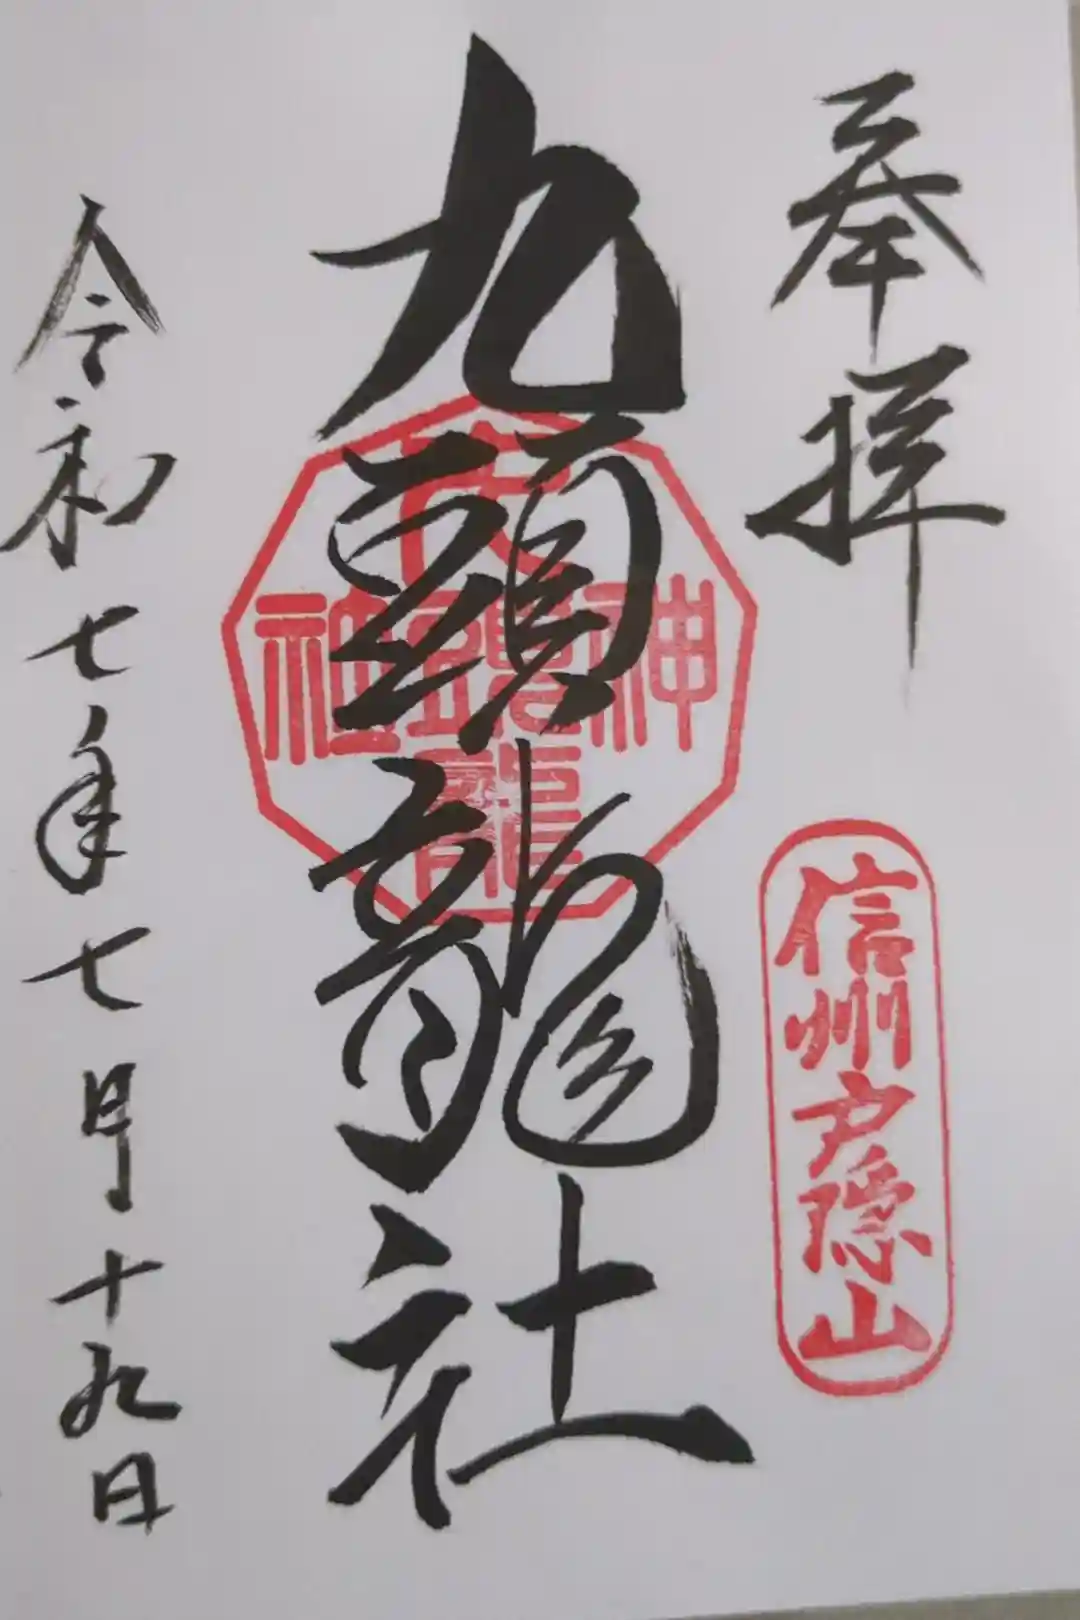 奉拝
信州戸隠山
九頭龍社
九
神頭社
龍
令和七年七月十九日